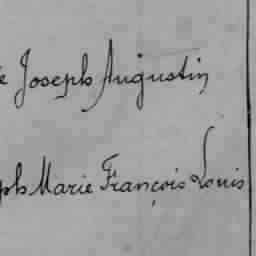 e Joseph Augustin
ph Marie François Louis